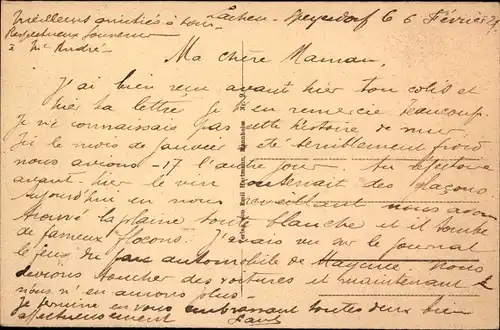 meilleurs amitiés à tous
Respectueux Souvenir
à Mr André
Lachen-Speyerdorf le 6 Février 29
Ma chère Maman,
J'ai bien reçu avant hier ton colis et
hier ta lettre, je t'en remercie beaucoup.
Je ne connaissais pas cette histoire de mur
Ici le mois de janvier a été terriblement froid
nous avions -17 l'autre jour. Au réfectoire
avant-hier le vin contenait des glaçons
Aujourd'hui en nous réveillant nous avons
trouvé la plaine toute blanche et il tombe
de fameux flocons. J'avais vu sur le journal
le feu du parc automobile de Mayence. Nous
devions toucher des voitures et maintenant
nous n'en aurons plus.
Je termine en vous embrassant toutes deux bien
affectueusement
Verlag von Emil Hartmann, Mannheim